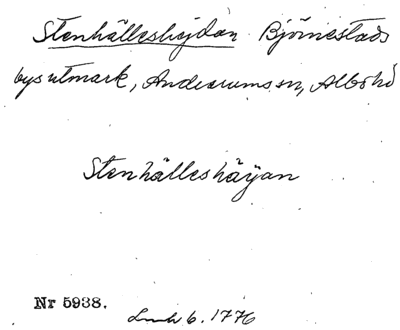 Stenhälleshöjdan Björnestads
bys utmark, Andrarums sn, Albo hd
Stenhälleshäijan
Nr 5938.
6. 1776